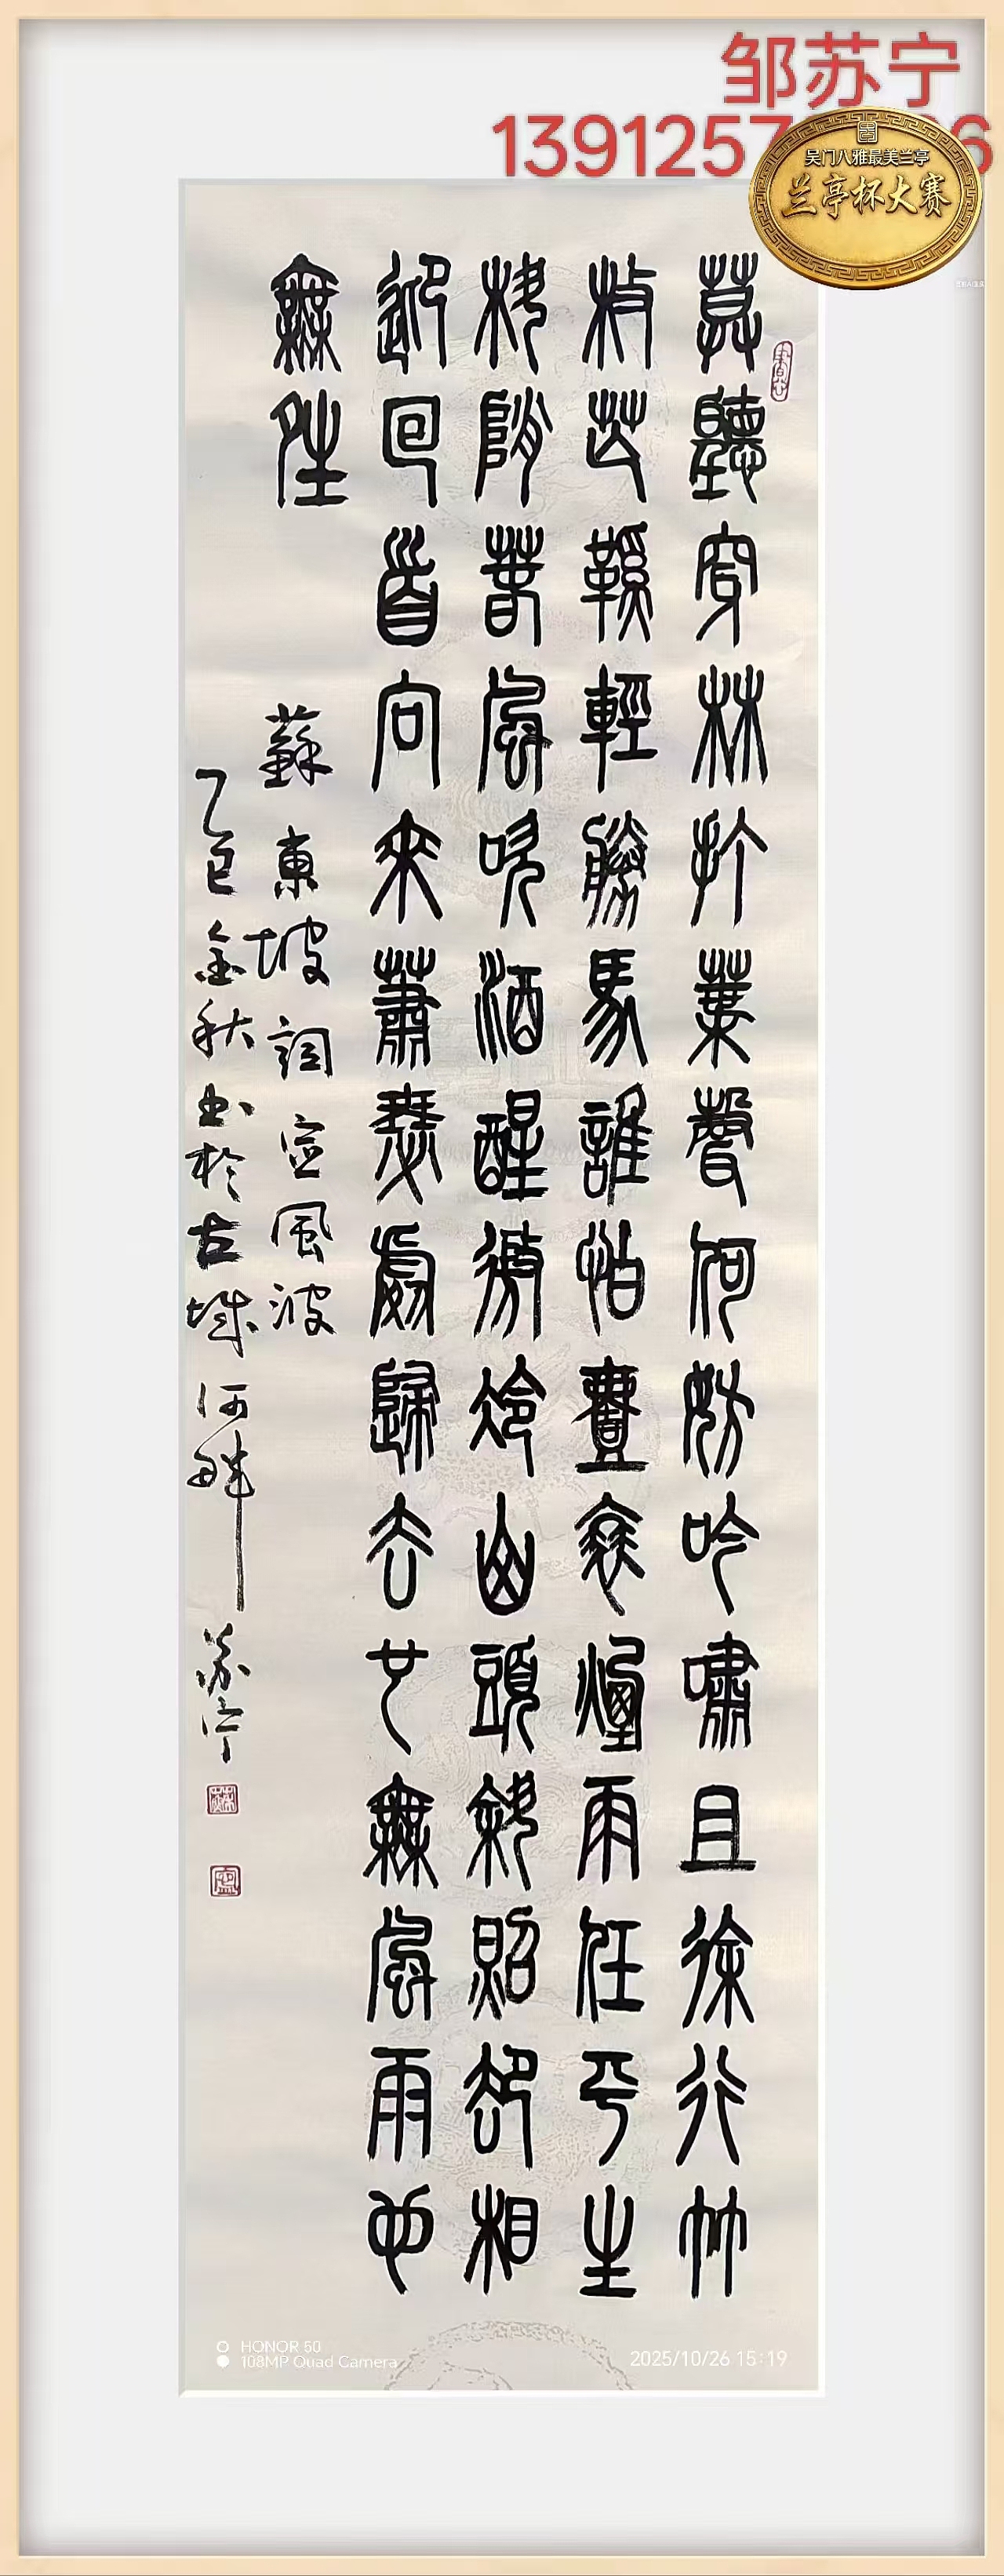 邹苏宁
1391257 6
吴门八雅最美兰亭
兰亭杯大赛
莫聽穿林打葉聲何妨吟嘯且徐行竹
杖芒鞵輕勝馬誰怕壹蓑煙雨任平生
料峭春風吹酒醒微冷山頭斜照卻相
迎回首向來蕭瑟處歸去也無風雨也
無夝
蘇東坡詞定風波
乙巳金秋书於古城河畔苏宁
HONOR 50
108MP Quad Camera
2025/10/26 15:19